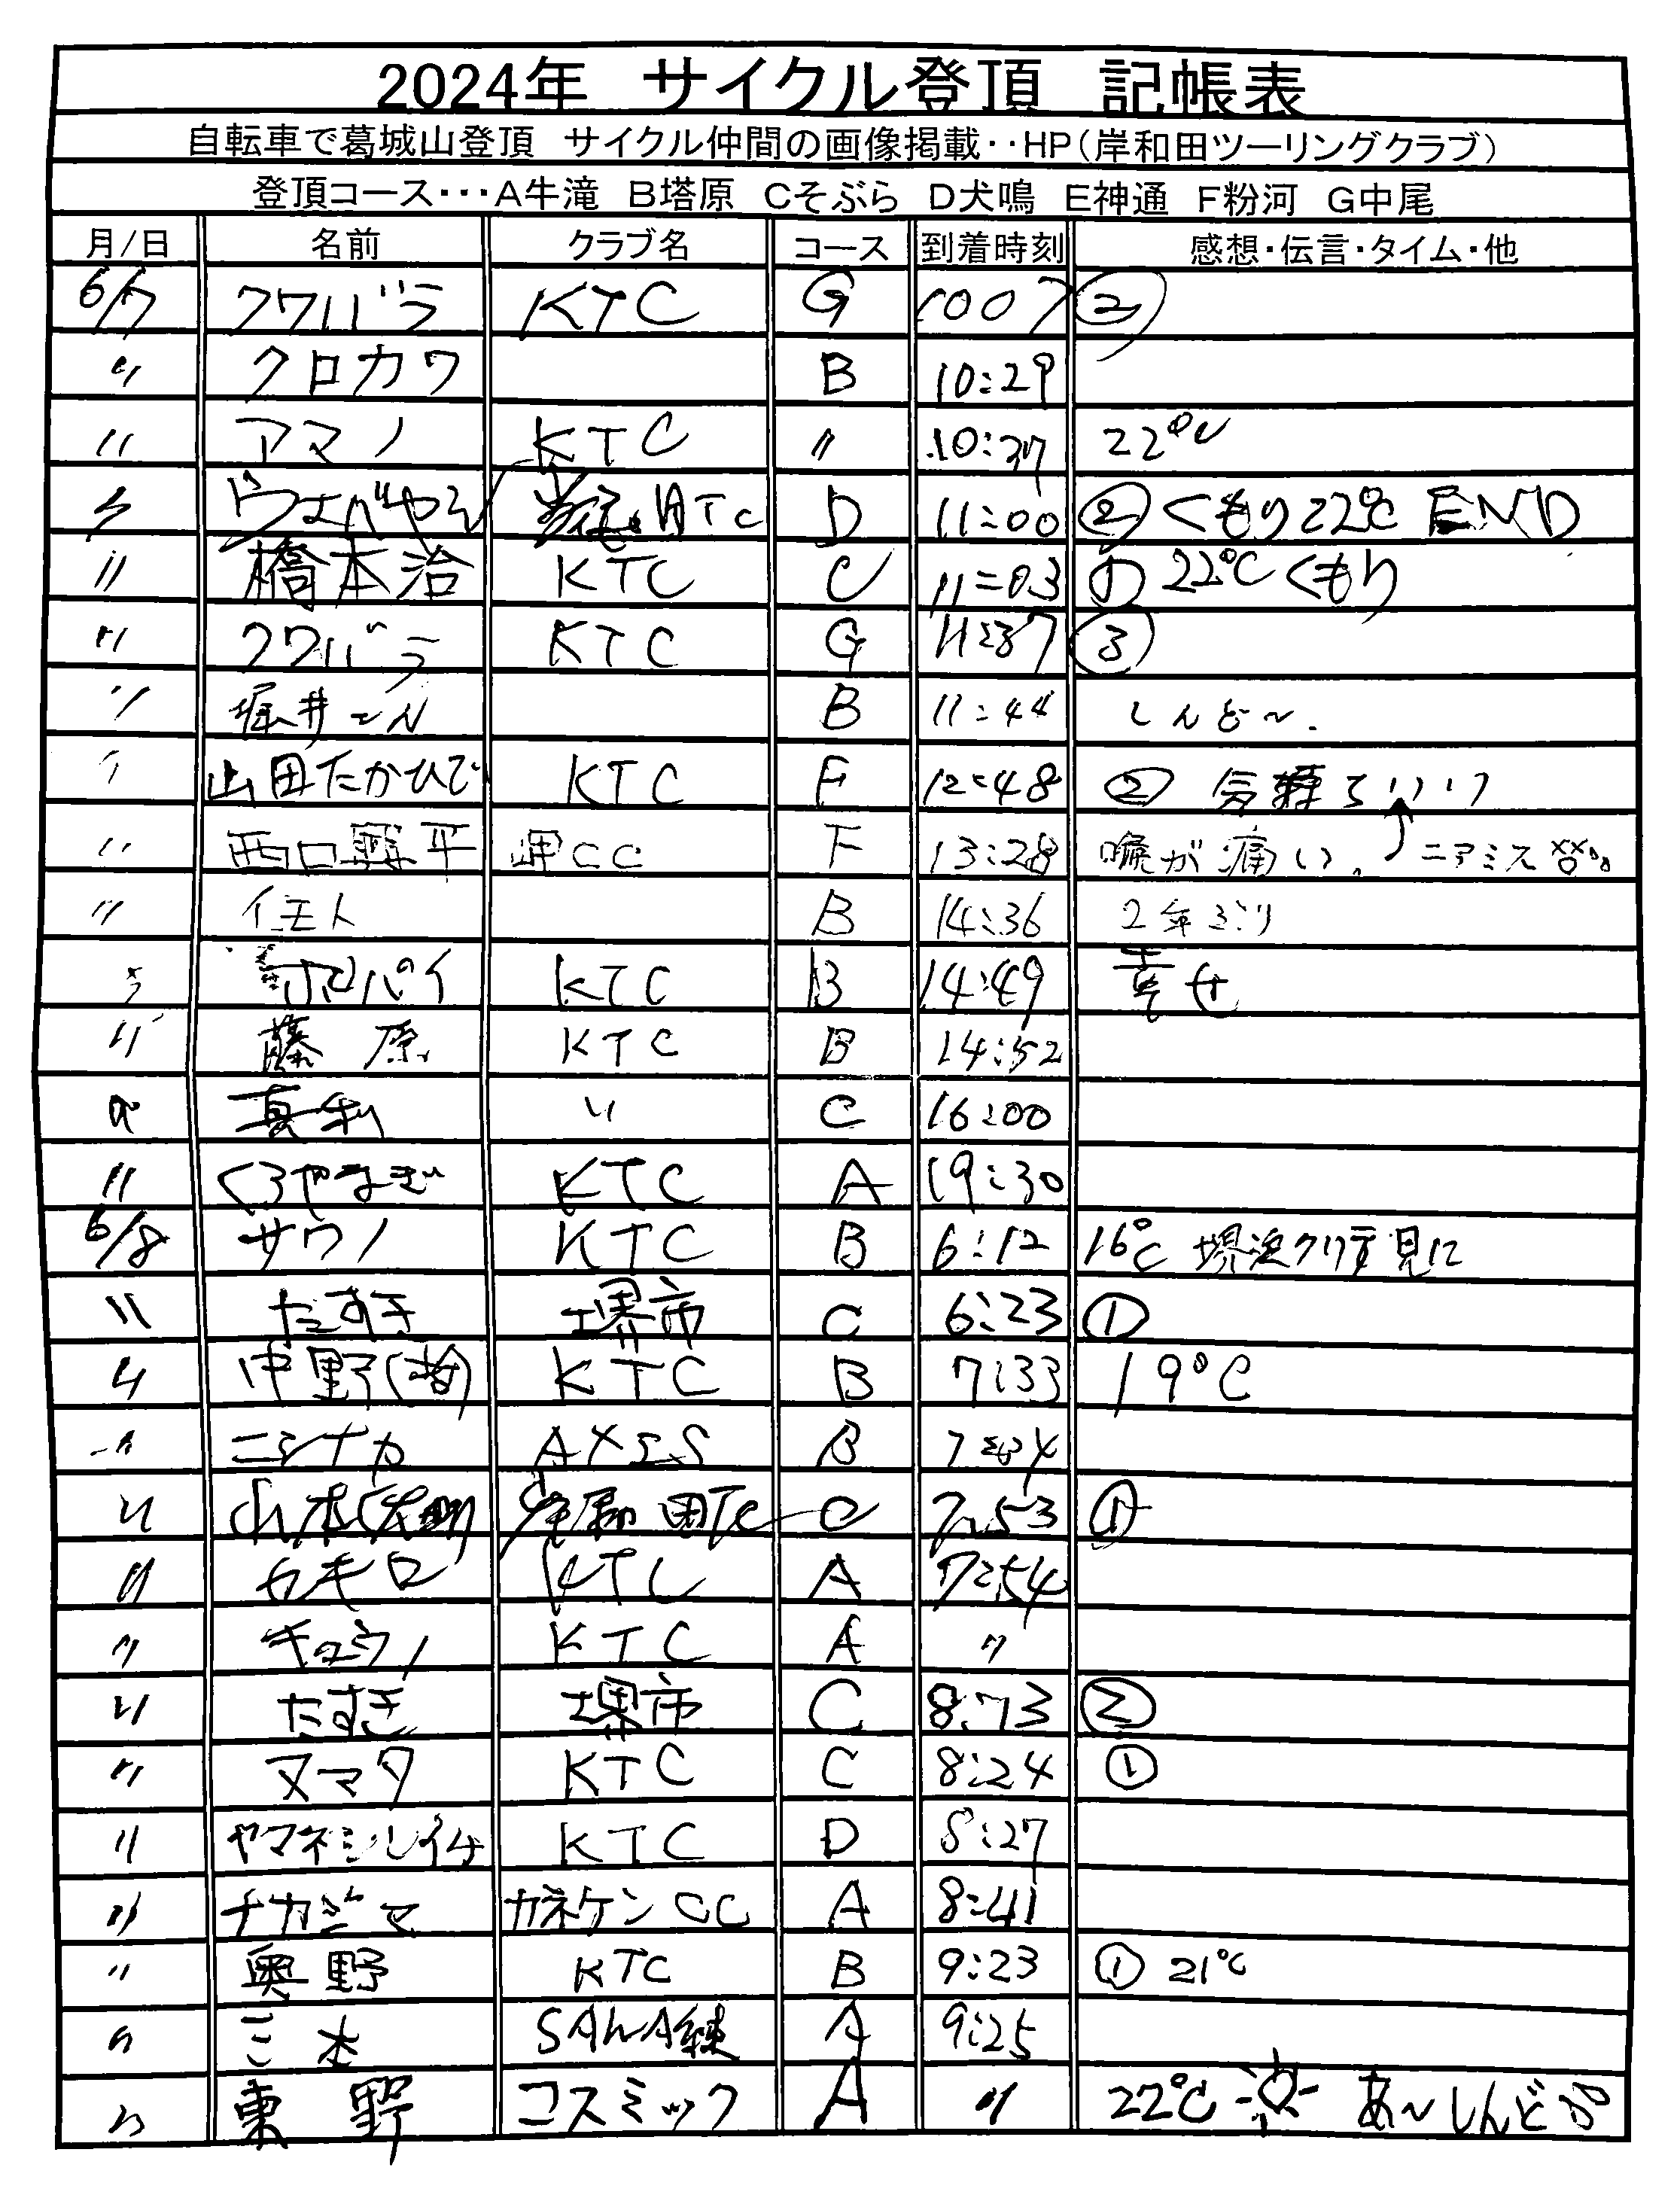 2024年 サイクル登頂 記帳表
自転車で葛城山登頂 サイクル仲間の画像掲載‥HP(岸和田ツーリングクラブ)
登頂コース･･･A牛滝 B塔原 Cそぶら D犬鳴 E神通 F粉河 G中尾
月/日 名前 クラブ名 コース 到着時刻 感想・伝言・タイム・他
6/7 クワバラ KTC G 1007 ②
〃 クロカワ B 10:29
〃 アマノ KTC 〃 10:37 22℃
〃 TC D 11:00 ② くもり22℃ END
〃 橋本治 KTC C 11:03 22℃ くもり
〃 クワバラ KTC G 11:37 ③
〃 堀井 B 11:44 しんど〜.
〃 山田たかひで KTC F 12:48 ②
〃 西口 平 岬CC F 13:28 喉が痛い。 ニアミス
〃 イモト B 14:36 2年ぶり
〃 パイ KTC B 14:49 幸せ
〃 藤原 KTC B 14:52
〃 真利 〃 C 16:00
〃 くろやなぎ KTC A 19:30
6/8 サワノ KTC B 6:12 16℃ 堺浜クリテ見に
〃 たすき 堺市 C 6:23 ①
〃 中野 KTC B 7:33 19℃
〃 ニシナカ B
〃 山本 岸和田TC C 7:53 ①
〃 カキロ KTC A 7:54
〃 キョウノ KTC A 〃
〃 たすき 堺市 C 8:13 ②
〃 ヌマタ KTC C 8:24 ①
〃 ヤマネシゲイチ KTC D 8:27
〃 ナカジマ カネケンCC A 8:41
〃 奥野 KTC B 9:23 ① 21℃
〃 三本 A 9:25
〃 東野 コスミック A 〃 22℃ あ〜しんど